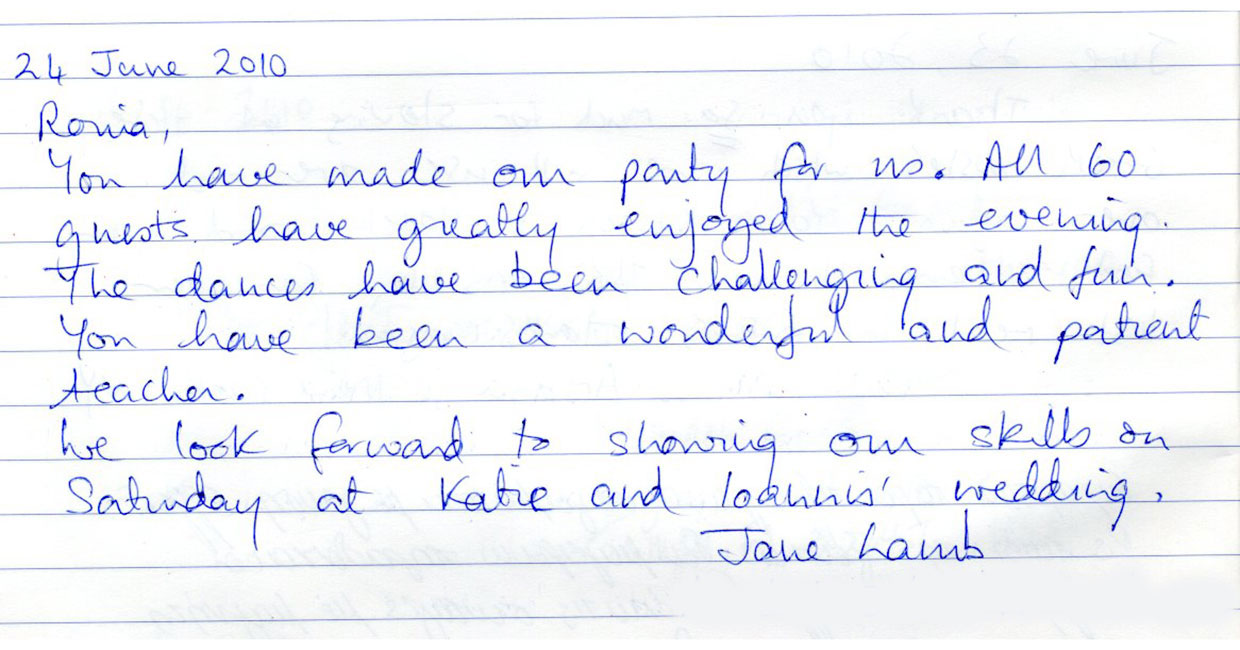 24 June 2010
Ronia,
You have made our party for us. All 60
guests have greatly enjoyed the evening.
The dances have been challenging and fun.
You have been a wonderful and patient
teacher.
We look forward to showing our skills on
Saturday at Katie and Ioannis' wedding.
Jane Lamb